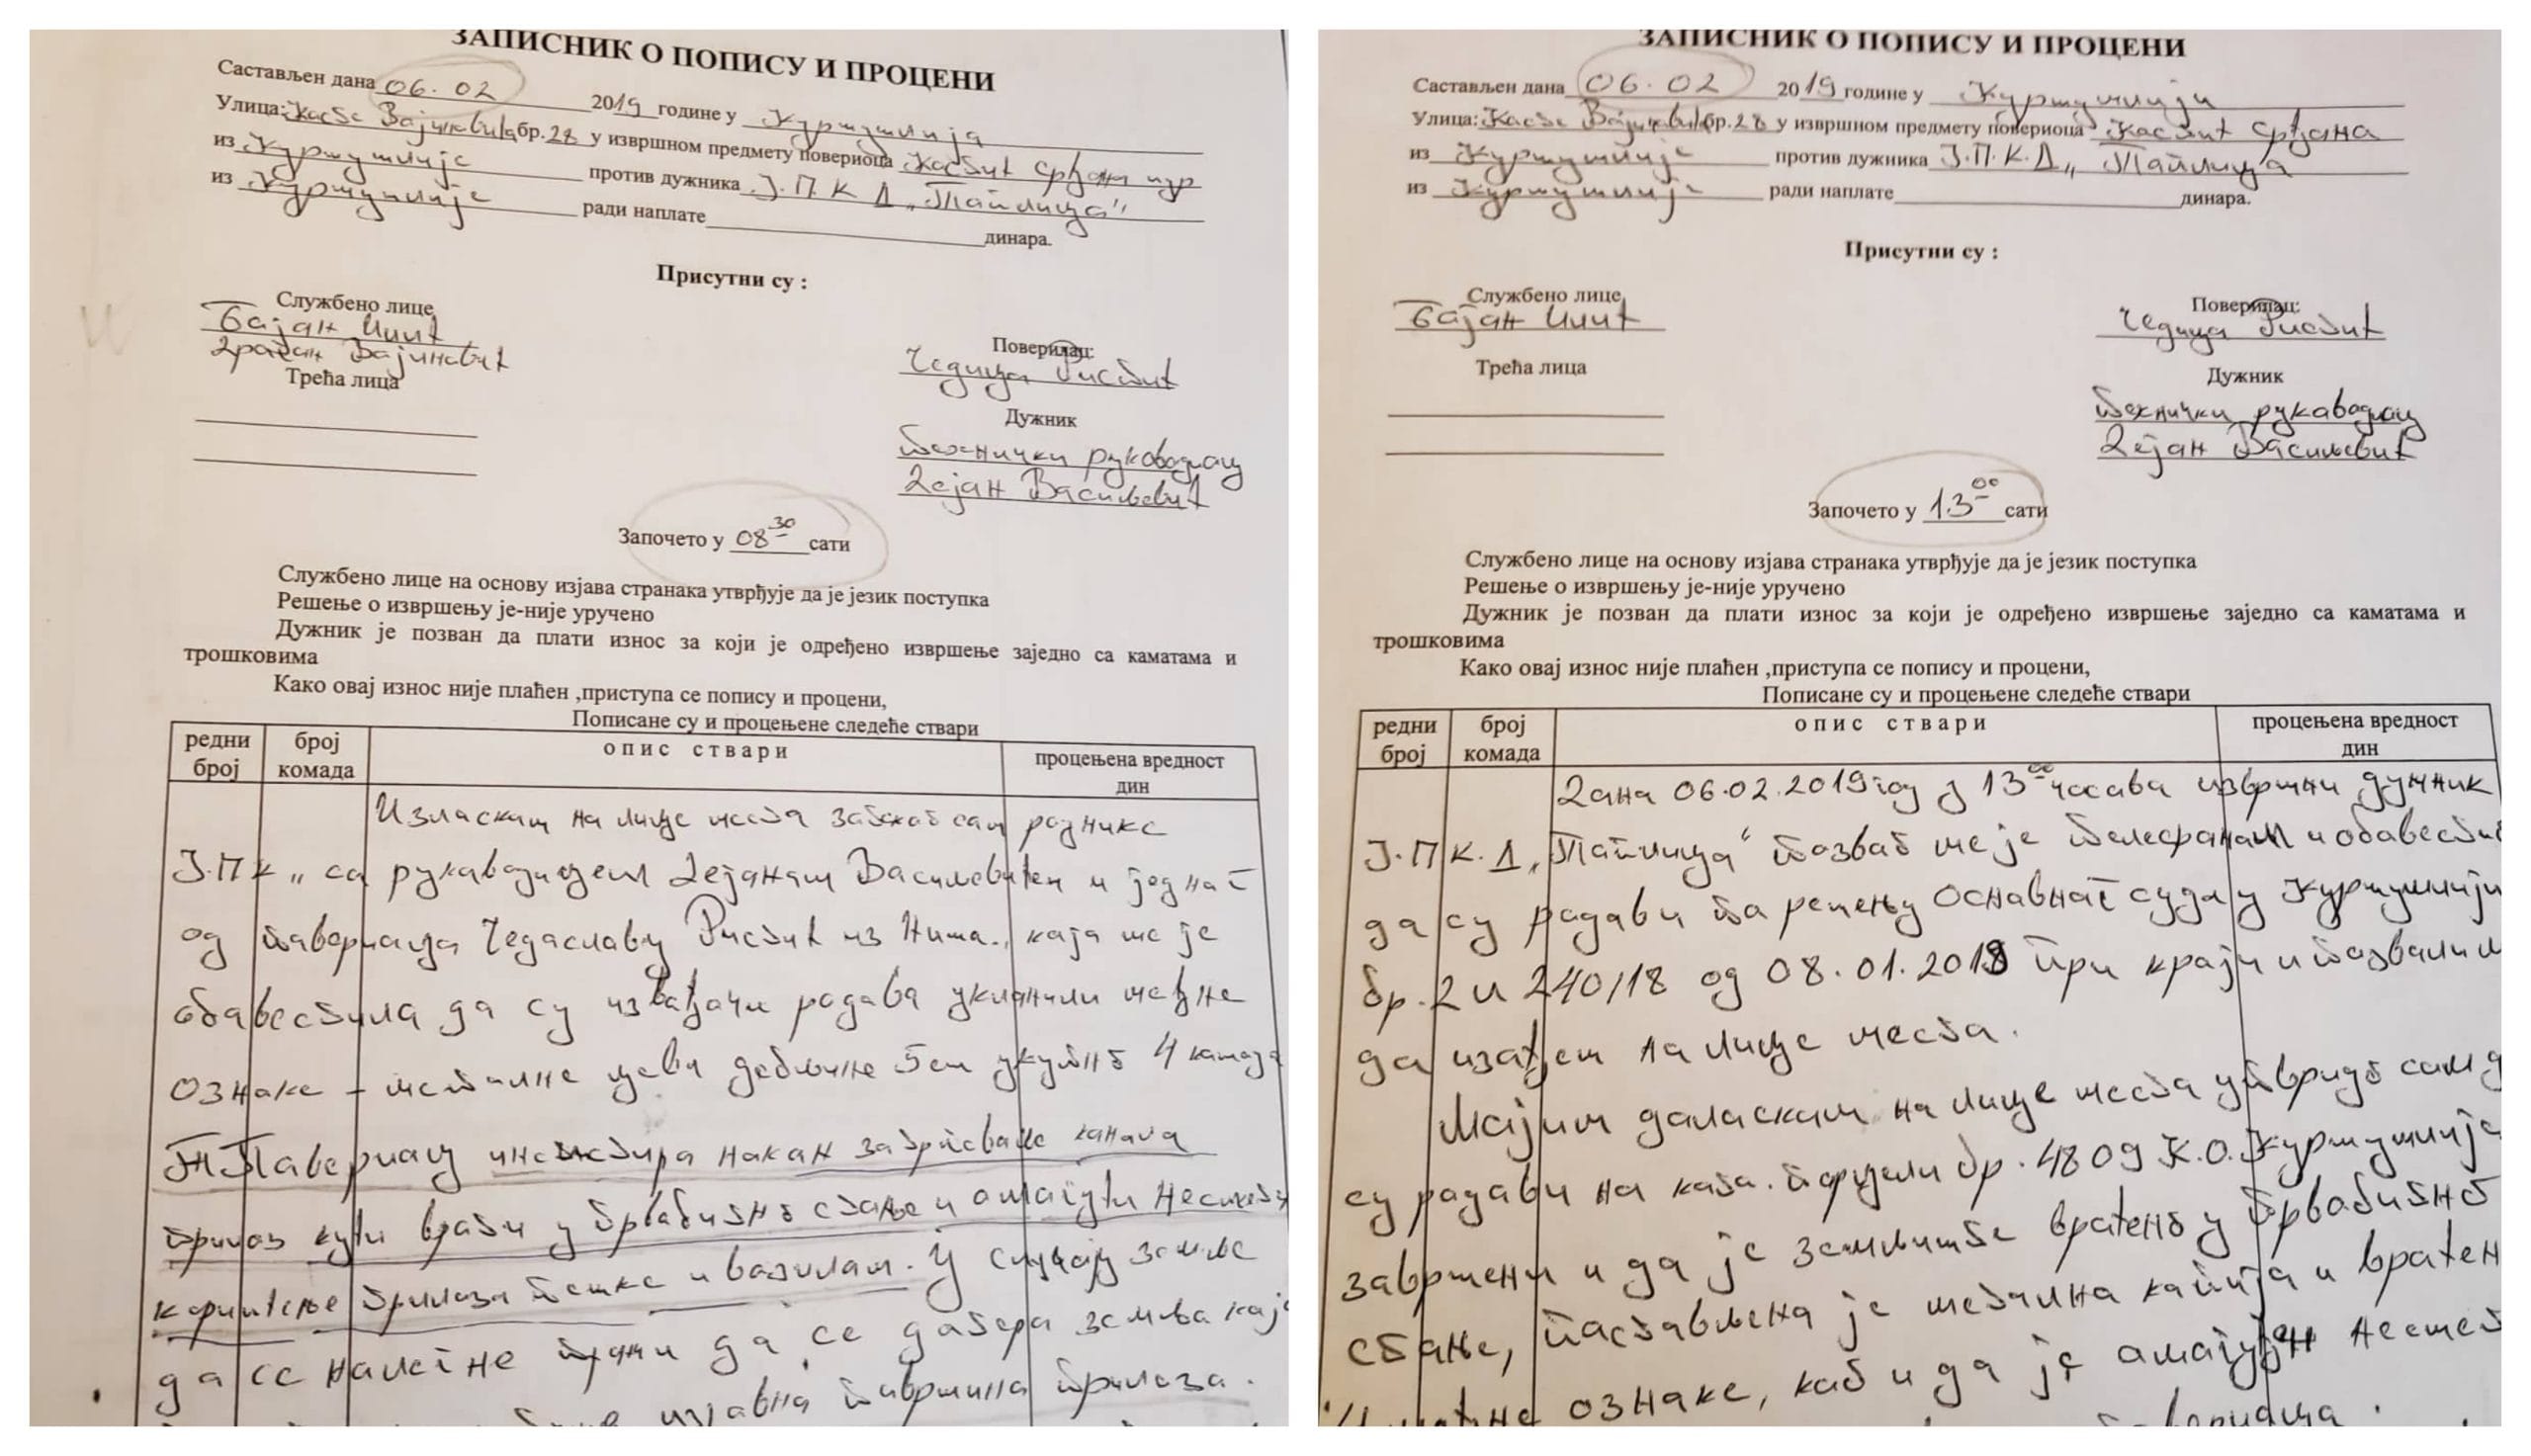 ЗАПИСНИК О ПОПИСУ И ПРОЦЕНИ
Састављен дана 06.02 2019 године у Куршумлија
Улица: Косте Војиновића бр. 28 у извршном предмету повериоца Костић Срђана
из Куршумлије против дужника Ј.П.К.Д „Топлица“
из Куршумлије ради наплате динара.
Присутни су :
Службено лице
Бојан Илић
Драган Војиновић
Трећа лица
Поверилац:
Чедица Ристић
Дужник
технички руководиоц
Дејан Васиљевић
Започето у 08 30 сати
Службено лице на основу изјава странака утврђује да је језик поступка
Решење о извршењу је-није уручено
Дужник је позван да плати износ за који је одређено извршење заједно са каматама и
трошковима
Како овај износ није плаћен ,приступа се попису и процени,
Пописане су и процењене следеће ствари
редни број
број комада
опис ствари
процењена вредност дин
Изласком на лице места затекао сам раднике
Ј.П.К „ са руководиоцем Дејаном Васиљевићем и једног
од повериоца Чедославу Ристић из Ниша., која ме је
обавестила да су извођачи радова уклонили међне
ознаке - металне цеви дебљине 5cm укупно 4 комада
Поверилац инсистира након затрпавање канала
прилаз кући врати у првобитно стање и омогући несметано
коришћење прилаза пешке и возилом. У случају земље
да се налегне тражи да се дотера земља која
изјавна површина прилаза.
ЗАПИСНИК О ПОПИСУ И ПРОЦЕНИ
Састављен дана 06.02 2019 године у Куршумлији
Улица: Косте Војиновића бр. 28 у извршном предмету повериоца Костић Срђана
из Куршумлије против дужника Ј.П.К.Д „Топлица
из Куршумлије ради наплате динара.
Присутни су :
Службено лице
Бојан Илић
Трећа лица
Поверилац:
Чедица Ристић
Дужник
технички руководиоц
Дејан Васиљевић
Започето у 13 00 сати
Службено лице на основу изјава странака утврђује да је језик поступка
Решење о извршењу је-није уручено
Дужник је позван да плати износ за који је одређено извршење заједно са каматама и
трошковима
Како овај износ није плаћен ,приступа се попису и процени,
Пописане су и процењене следеће ствари
редни број
број комада
опис ствари
процењена вредност дин
Дана 06.02.2019 год у 13 00 часова извршни дужник
Ј.П.К.Д „Топлица“ позвао ме је телефоном и обавестио
да су радови по решењу Основног суда у Куршумлији
бр. 2 И 240/18 од 08.01.2018 при крају и позвали м
да изађем на лице места.
Мојим доласком на лице места утврдио сам д
су радови на кат. парцели бр. 4809 К.О. Куршумлија
завршени и да је земљиште враћено у првобитно
стање, постављена је метална капија и враћен
ознаке, као и да је омогућен несмет